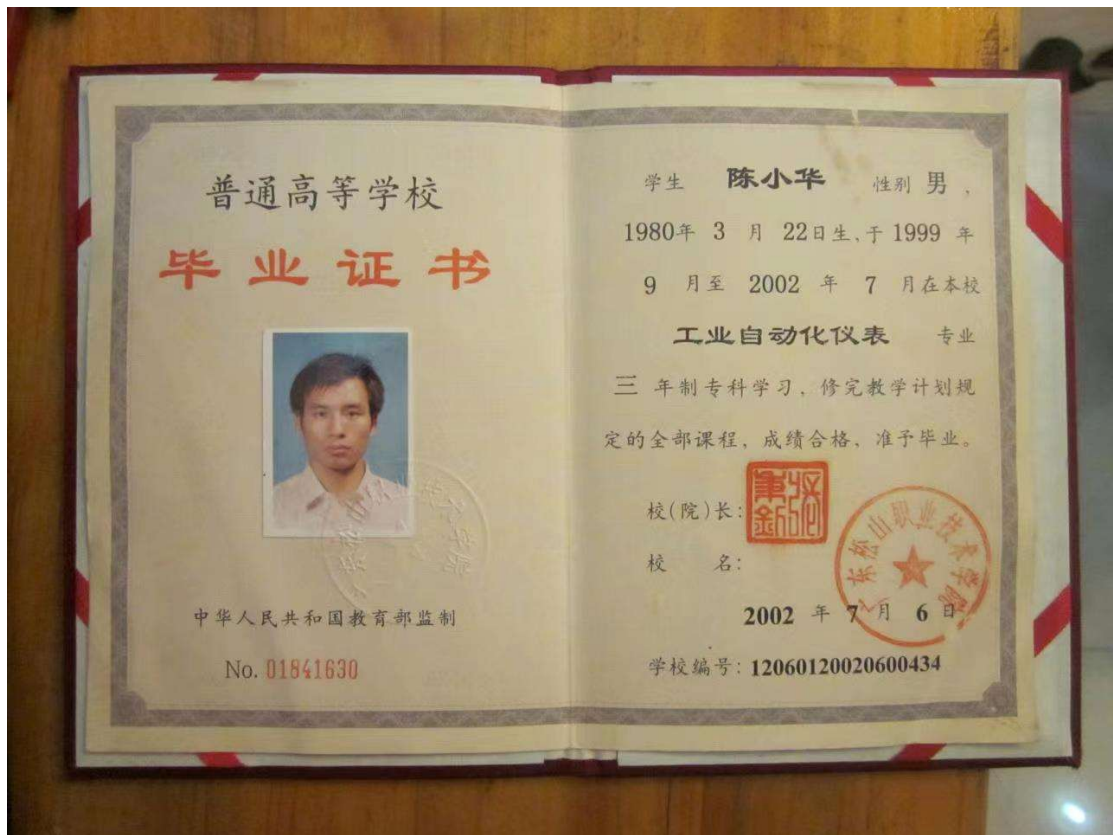 普通高等学校
毕业证书
中华人民共和国教育部监制
No. 01841630
学生 陈小华 性别 男,
1980年 3 月 22日生,于 1999 年
9 月至 2002 年 7 月在本校
工业自动化仪表 专业
三 年制专科学习,修完教学计划规
定的全部课程,成绩合格,准予毕业。
校(院)长:
校 名:
广东松山职业技术学院
2002 年 7 月 6 日
学校编号: 12060120020600434